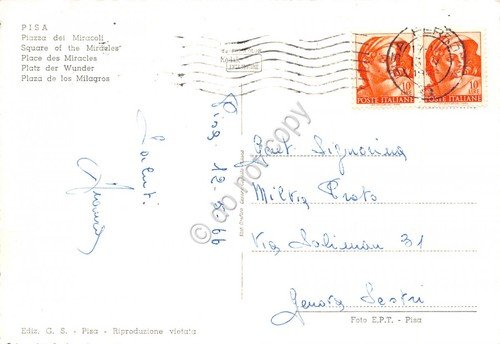 PISA
Piazza dei Miracoli
Square of the Miracles
Place des Miracles
Platz der Wunder
Plaza de los Milagros
10
POSTE ITALIANE
10
POSTE ITALIANE
Pisa 12. 8. 66
Saluti
Gent. Signorina
Milvia Prato
Via Soliman 31
Genova Sestri
do not copy
Ediz. G. S. - Pisa - Riproduzione vietata
Foto E.P.T. - Pisa